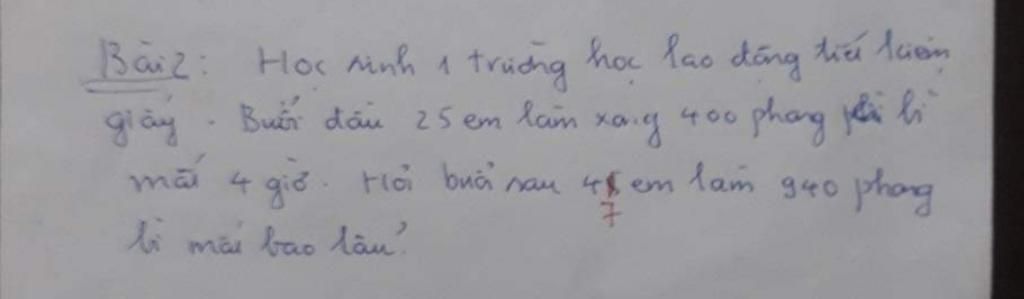 Bài 2: Học sinh 1 trường học lao động tiết kiệm
giấy. Buổi đầu 25 em làm xong 400 phong bì
mất 4 giờ. Hỏi buổi sau 47 em làm 940 phong
bì mất bao lâu?